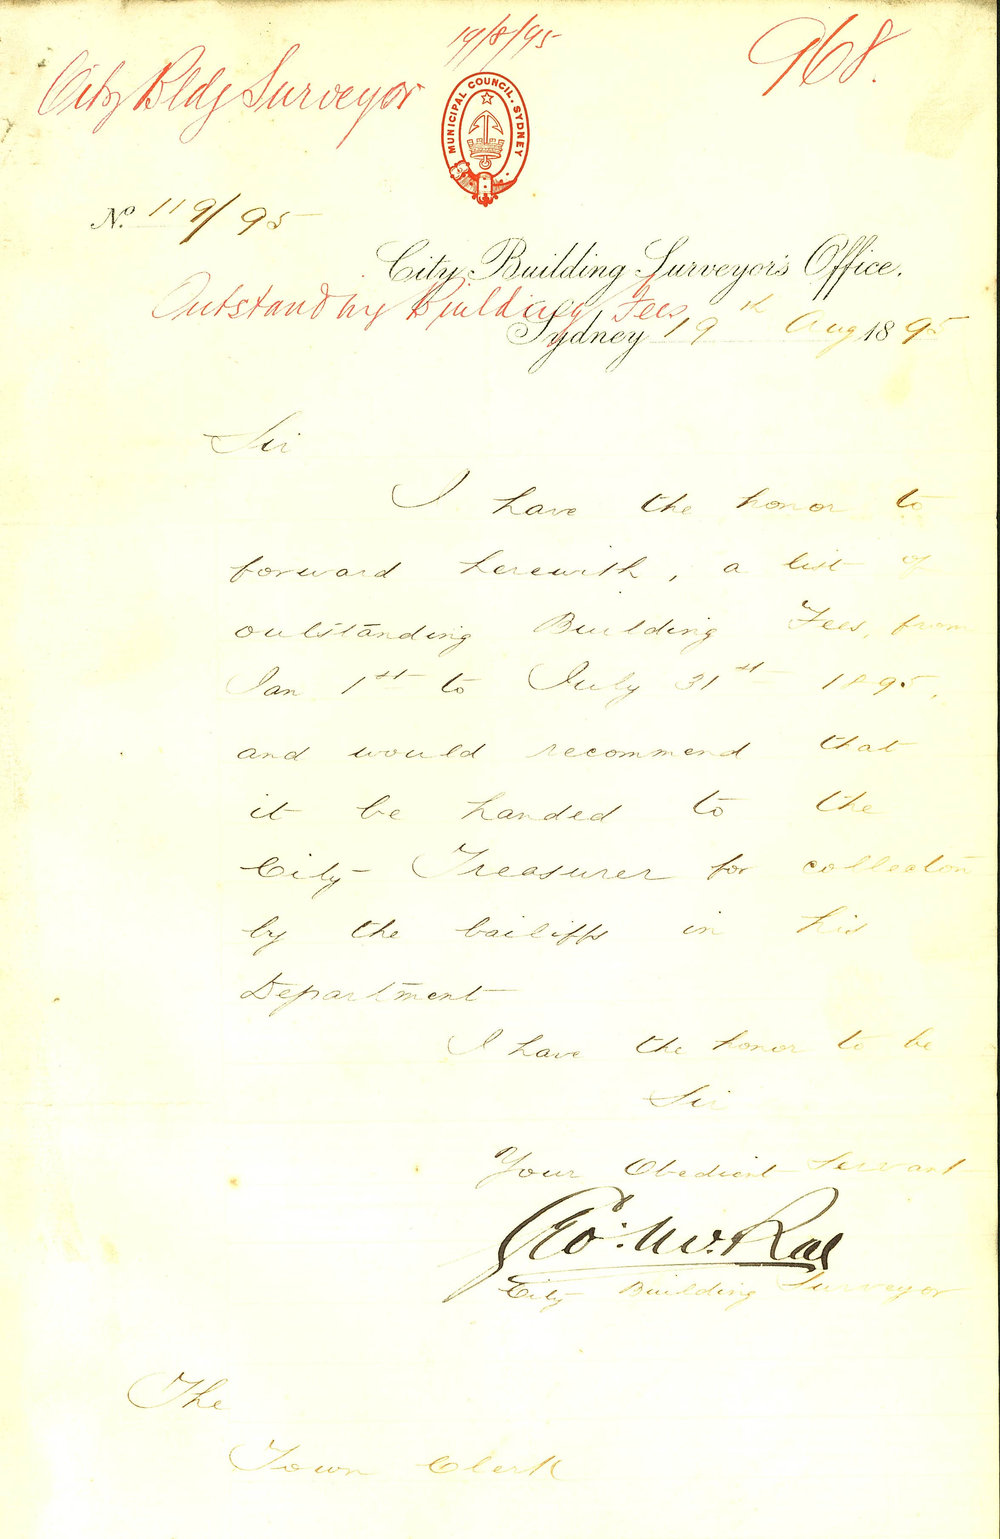 19/8/95
968.
City Bldg Surveyor
MUNICIPAL COUNCIL. SYDNEY
No. 119/95
City Building Surveyor's Office.
Outstanding Building Fees
Sydney 19th Aug 1895
Sir
I have the honor to
forward herewith, a list of
outstanding Building Fees, from
Jan 1st to July 31st 1895,
and would recommend that
it be handed to the
City Treasurer for collection
by the bailiffs in his
Department
I have the honor to be
Sir
Your Obedient Servant
Geo: McRae
City Building Surveyor
The
Town Clerk